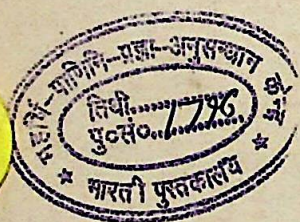 महर्षि-पाणिनि-प्रज्ञा-अनुसन्धान केन्द्र
तिथी..............
पु०सं०.1796
* भारती पुस्तकालय *